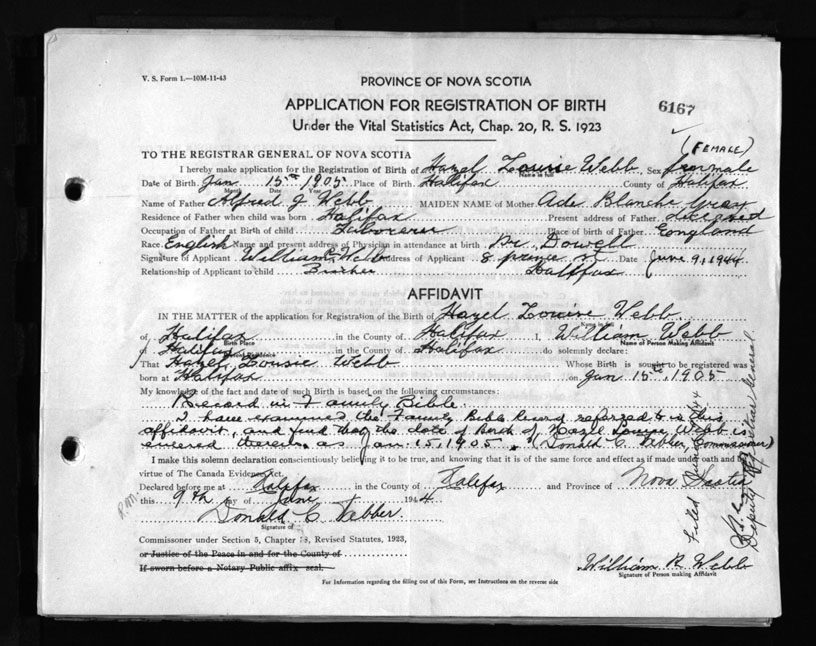 V. S. Form 1.—10M-11-43
PROVINCE OF NOVA SCOTIA
APPLICATION FOR REGISTRATION OF BIRTH
6167
Under the Vital Statistics Act, Chap. 20, R. S. 1923
(FEMALE)
TO THE REGISTRAR GENERAL OF NOVA SCOTIA
I hereby make application for the Registration of Birth of Hazel Louise Webb Sex Fearmale
Name in full
Date of Birth Jan 15th 1905 Place of Birth Halifax County of Halifax
Month Date Year
Name of Father Alfred J Webb MAIDEN NAME of Mother Ade Blanche Gray
Residence of Father when child was born Halifax Present address of Father
Occupation of Father at Birth of child Laborerer Place of birth of Father Eongland
Race English Name and present address of Physician in attendance at birth Dr Dowell
Signature of Applicant William Webb Address of Applicant 8 prince st Date June 9, 1944
Relationship of Applicant to child Brother Halifax
AFFIDAVIT
IN THE MATTER of the application for Registration of the Birth of Hazel Louise Webb
Name in full
of Halifax in the County of Halifax I, William Webb
Birth Place Name of Person Making Affidavit
of Halifax in the County of Halifax do solemnly declare:
Residence
That Hazel Lousie Webb Whose Birth is sought to be registered was
born at Halifax on Jan 15th, 1905
My knowledge of the fact and date of such Birth is based on the following circumstances:
Record in Family Bible.
I have examined the Family Bible Record referred to in this
affidavit, and find that the date of Birth of Hazel Louise Webb is
entered therein as Jan. 15, 1905. (Donald C. Webber, Commissioner)
I make this solemn declaration conscientiously believing it to be true, and knowing that it is of the same force and effect as if made under oath and by
virtue of The Canada Evidence Act.
Declared before me at Halifax in the County of Halifax and Province of Nova Scotia
this 9th day of June 1944
R.M.
Donald C. Webber
Signature of
Commissioner under Section 5, Chapter 38, Revised Statutes, 1923,
or Justice of the Peace in and for the County of
If sworn before a Notary Public affix seal.
William R Webb
Signature of Person making Affidavit
For Information regarding the filling out of this Form, see Instructions on the reverse side
Filed June
Deputy Registrar General